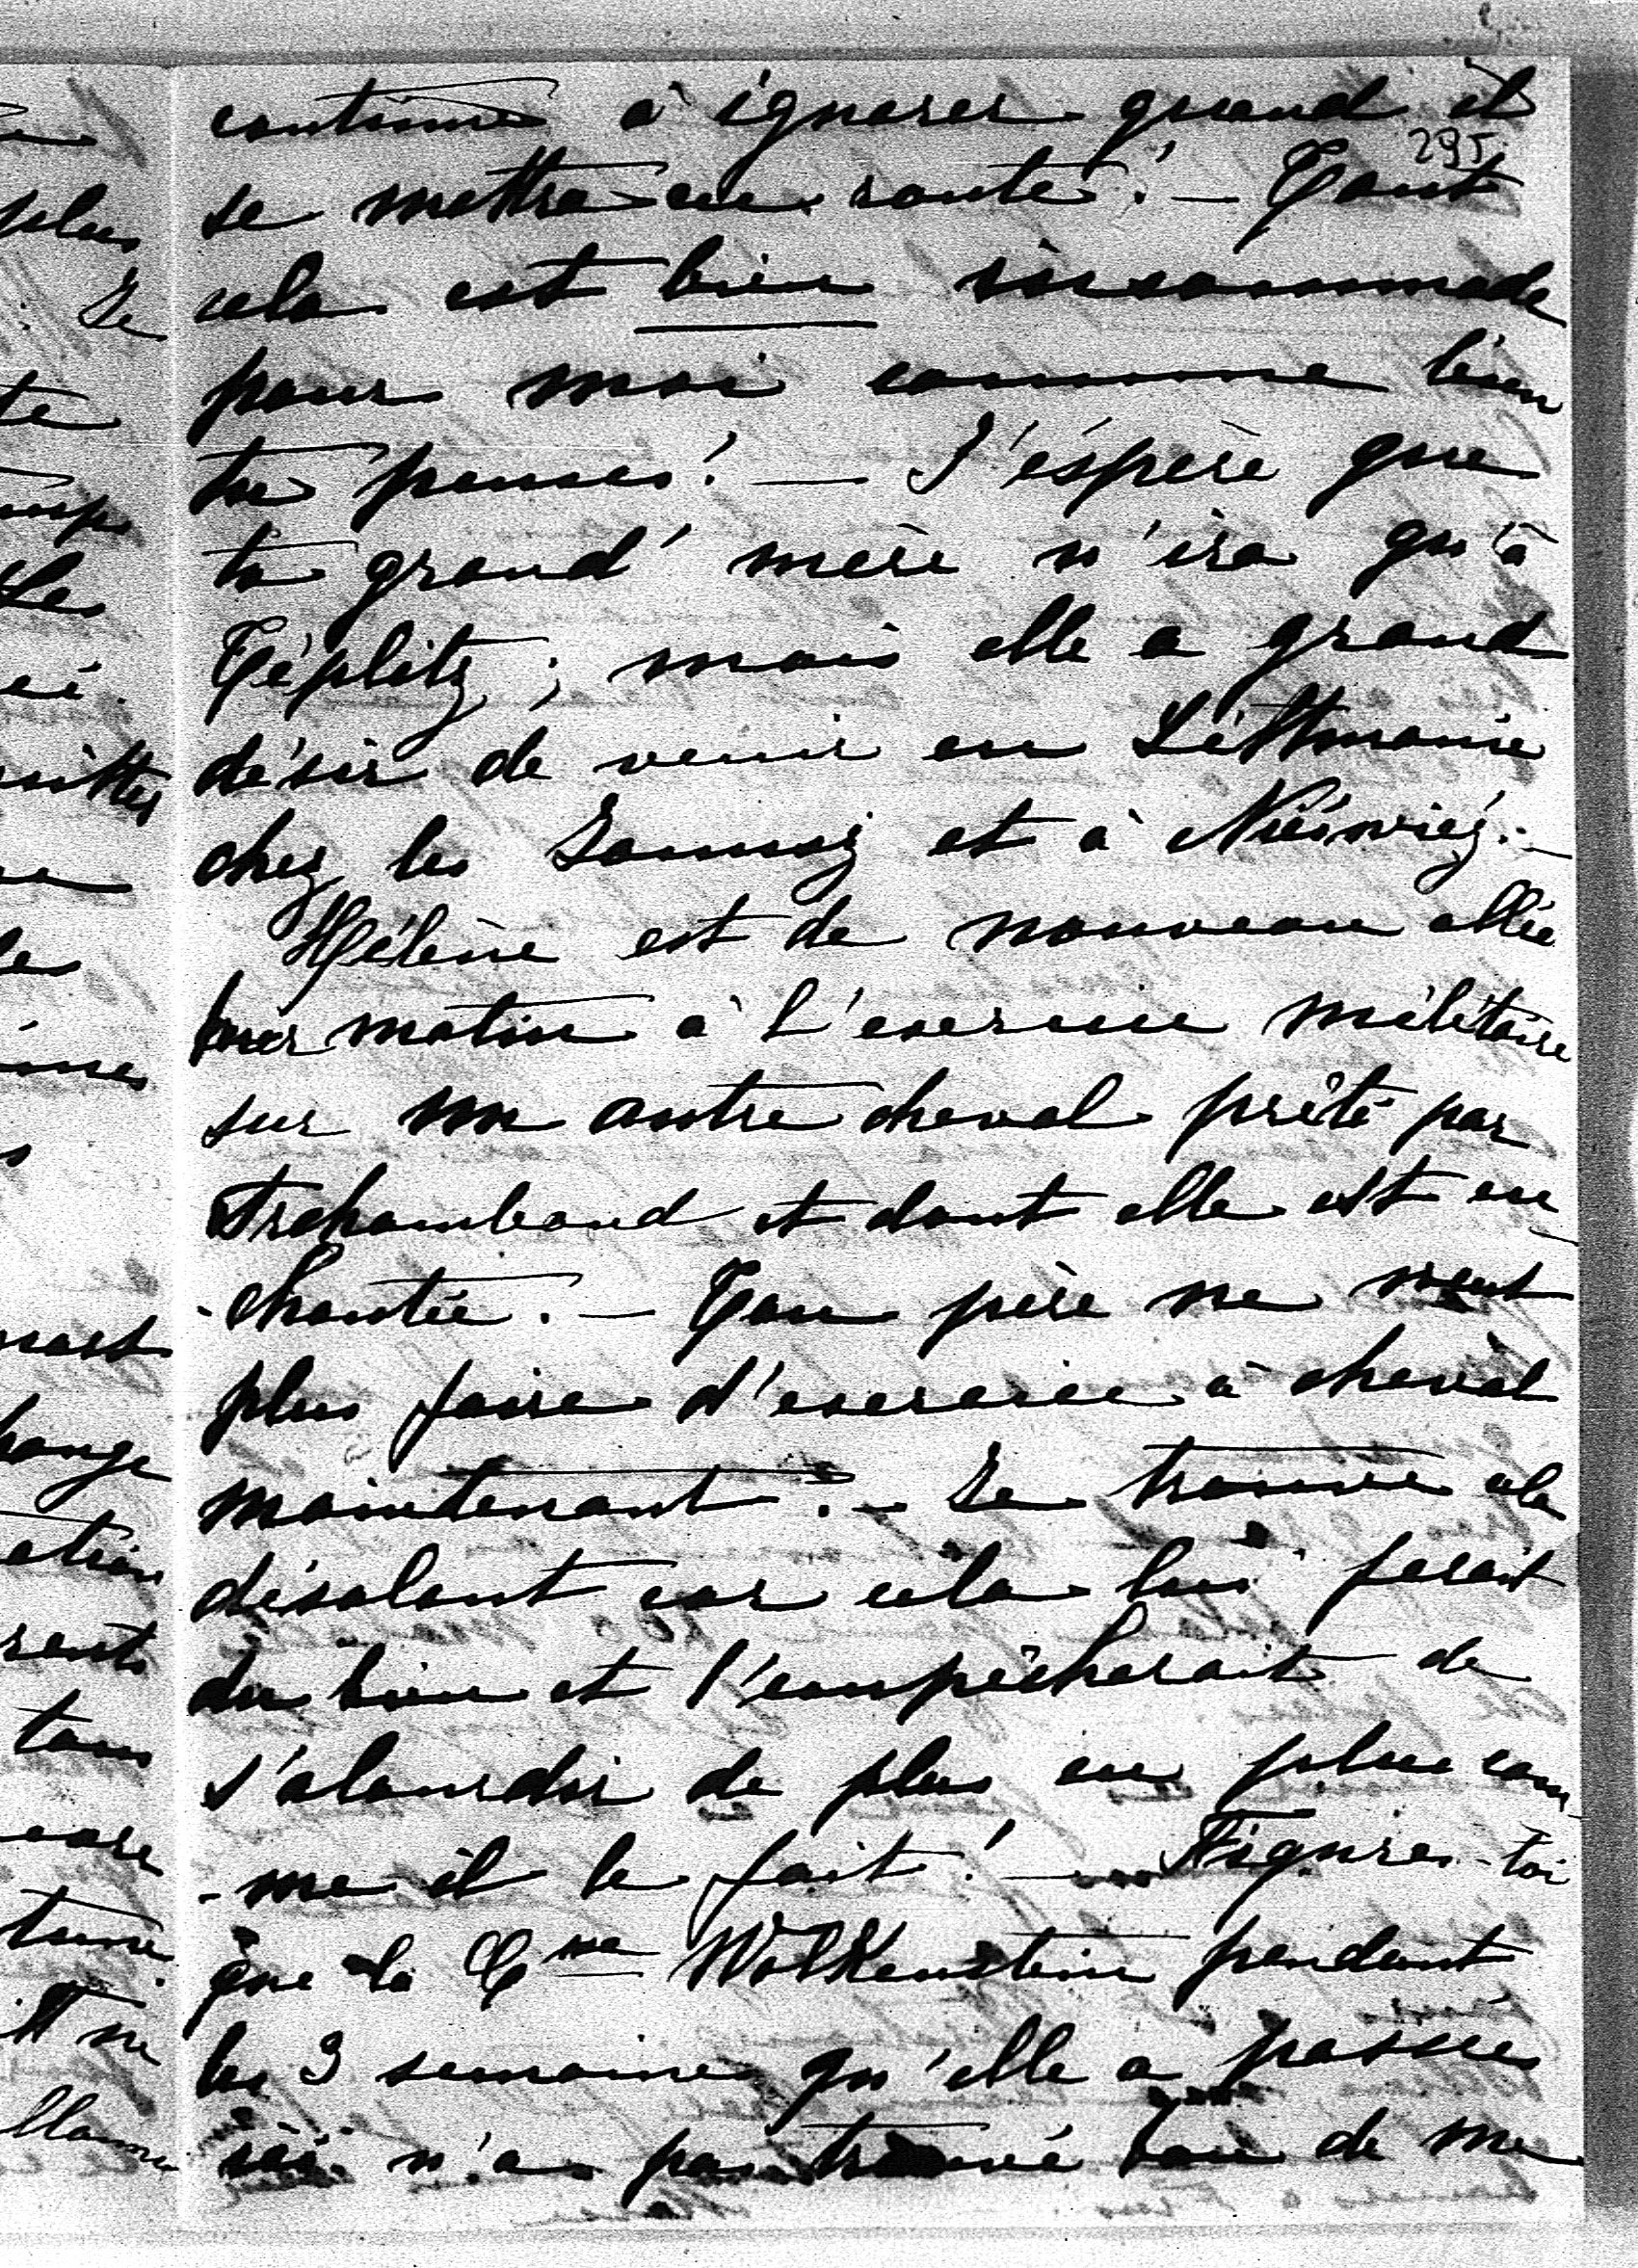 continue à ignorer quand il
295
se mettra en route! — Tout
cela est bien incommode
pour moi comme bien
tu penses! — J'éspère que
ta grand' mère n'ira qu'à
Téplitz; mais elle a grand
désir de venir en Litthuanie
chez les et à Nieswież. —
Hélène est de nouveau allée
hier matin à l'exercice militaire
sur un autre cheval prêté par
Trchambaud et dont elle est en
-chantée. — Ton père ne veut
plus faire d'exercice à cheval
maintenant. — Je trouve cela
désolant car cela lui ferait
du bien et l'empêcherait de
s'alourdir de plus en plus com
-me il le fait! — Figures-toi
que la Csse Wolkenstein pendant
les 3 semaines qu'elle a passées
ici n'a pas trouvé bon de me
plus
Je
te
les
mort
change
rents
tous